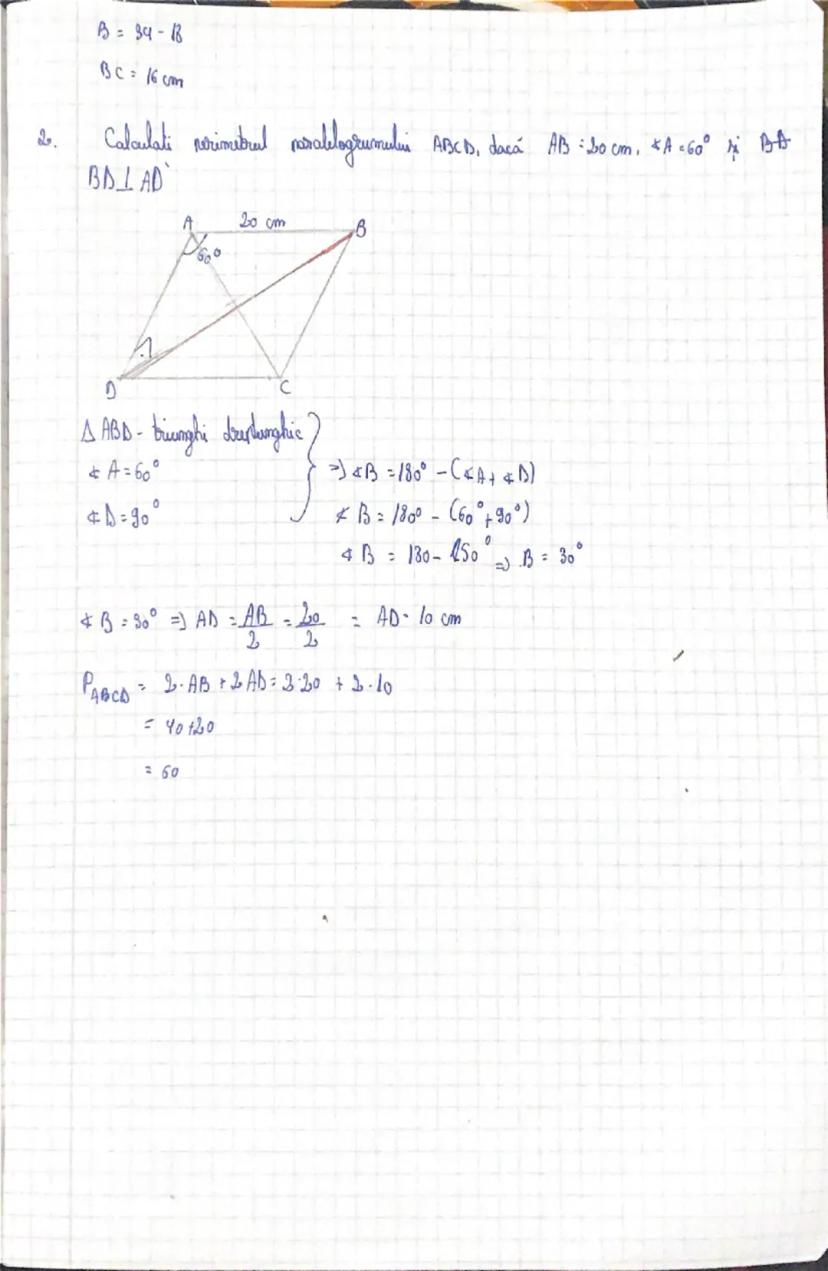 B = 34 - 18
BC = 16 cm
2. Calculati perimetrul paralelogramului ABCD, dacă AB = 20 cm, ∢A = 60° și BD
BD⊥AD
A 20 cm B
60°
D C
Δ ABD - triunghi dreptunghic
∢ A = 60° => ∢B = 180° - (∢A + ∢D)
∢ D = 90° ∢ B = 180° - (60° + 90°)
∢ B = 180 - 150° => B = 30°
∢ B = 30° => AD = AB/2 = 20/2 = AD = 10 cm
P ABCD = 2·AB + 2AD = 2·20 + 2·10
= 40 + 20
= 60